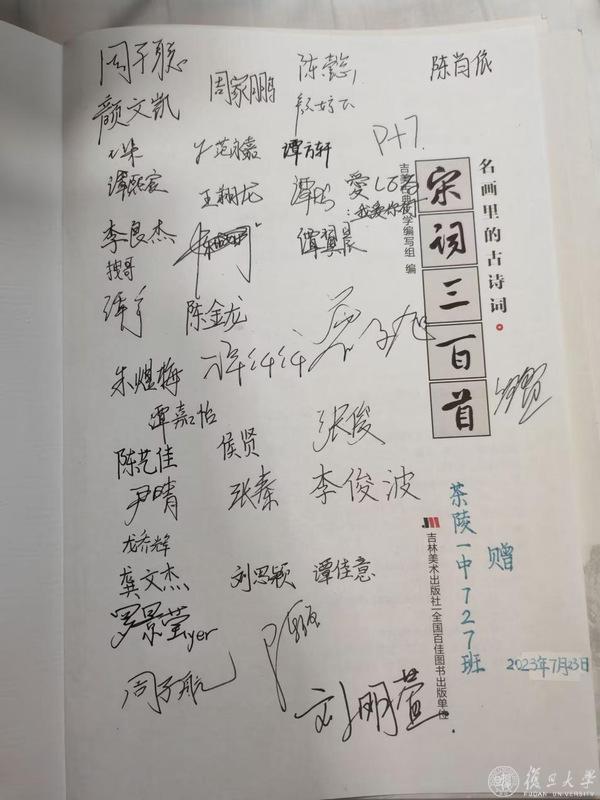 周子聪
周家鹏
陈懿
陈肖依
颜文凯
范永嘉
谭方轩
P+7.
谭熙宸
王翔龙
我爱你们
李良杰
谭翼晨
拽哥
陈金龙
朱煜梅
谭嘉怡
陈艺佳
侯贤
张俊
尹晴
张秦
李俊波
龙乔辉
龚文杰
刘思颖
谭佳意
罗景莹yer
周子航
刘明萱
名画里的古诗词
宋词三百首
学编写组 编
吉林美术出版社|全国百佳图书出版单位
茶陵一中727班
赠
2023年7月23日
復旦大學
FUDAN UNIVERSITY